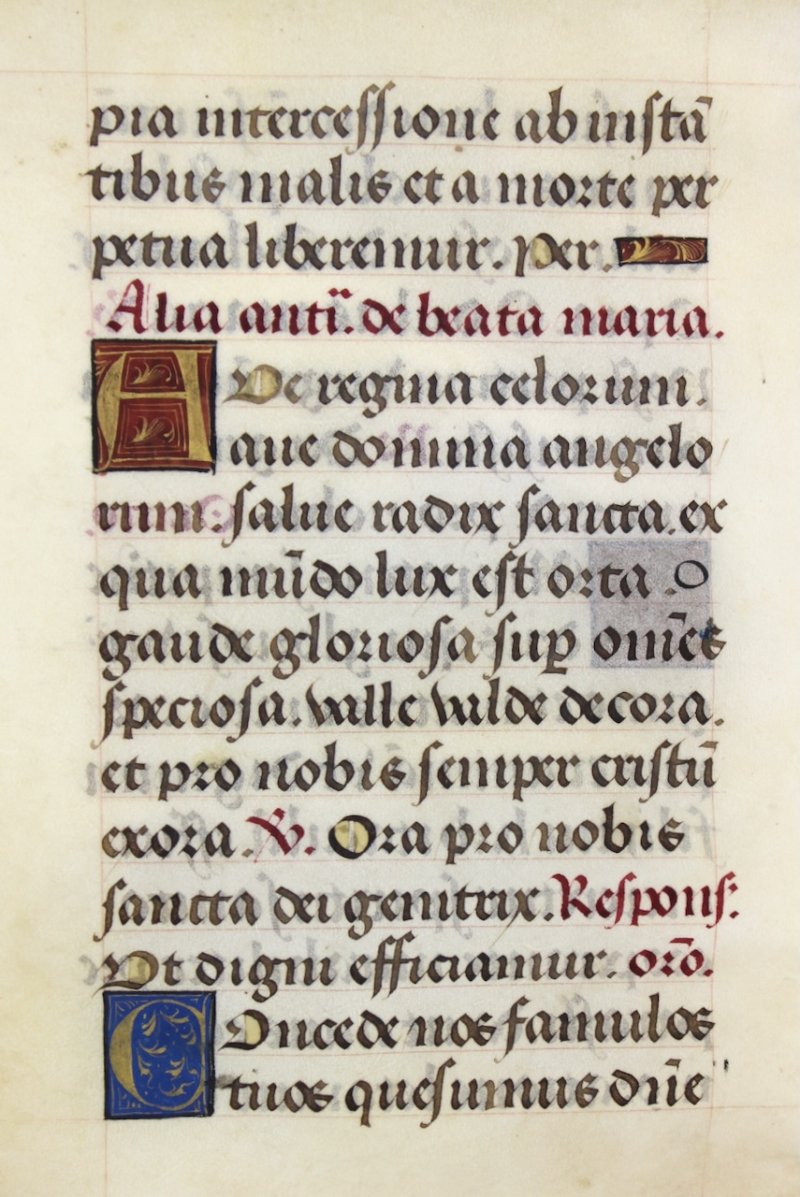 pia intercessione ab instā
tibus malis et a morte per
petua liberemur. Per.
Alia anti. de beata maria.
AVe regina celorum.
aue domina angelo
rum. salue radix sancta. ex
qua mūdo lux est orta. O
gaude gloriosa suꝑ om̄es
speciosa. valle valde decora.
et pro nobis semper cristū
exora. ℣. Ora pro nobis
sancta dei genitrix. Respons:
Vt digni efficiamur. orō.
COncede nos famulos
tuos quesumus dn̄e